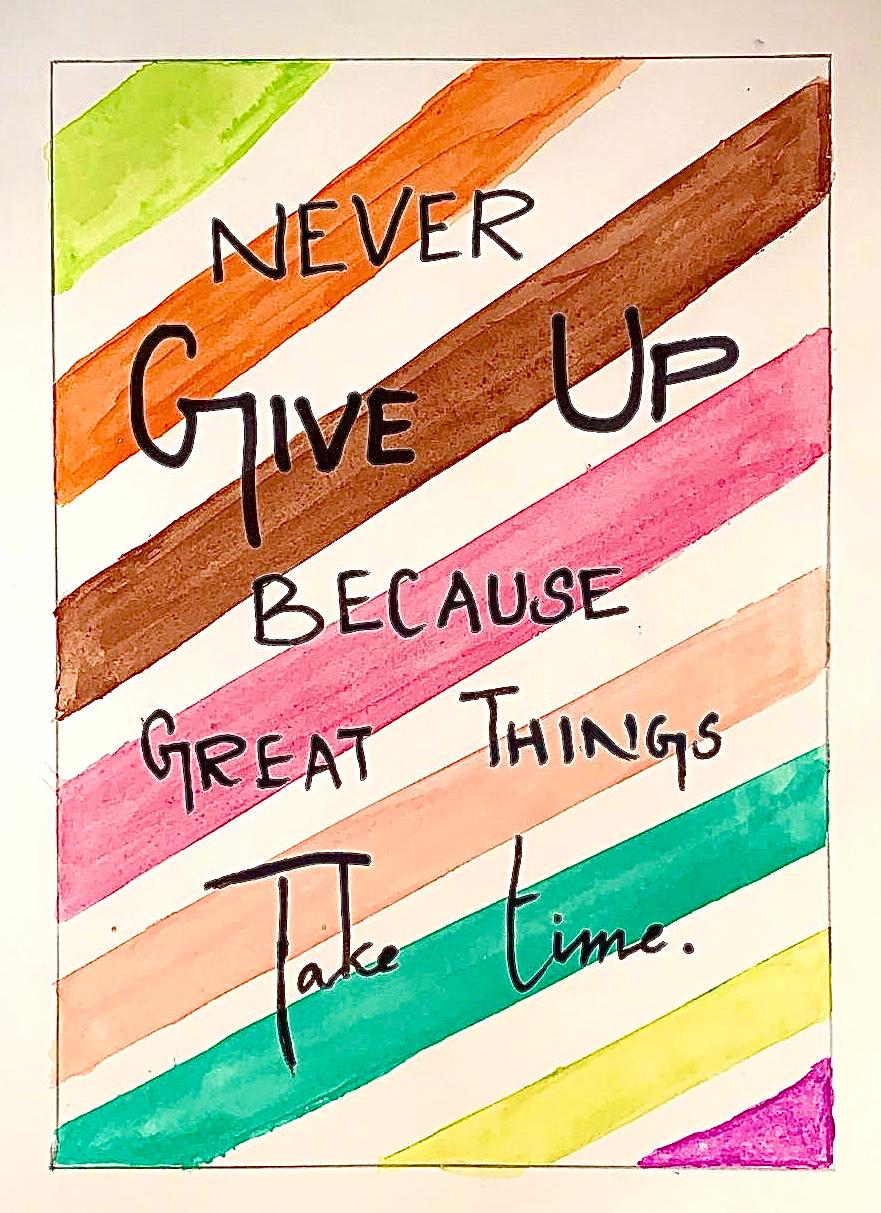 NEVER
GIVE UP
BECAUSE
GREAT THINGS
Take time.